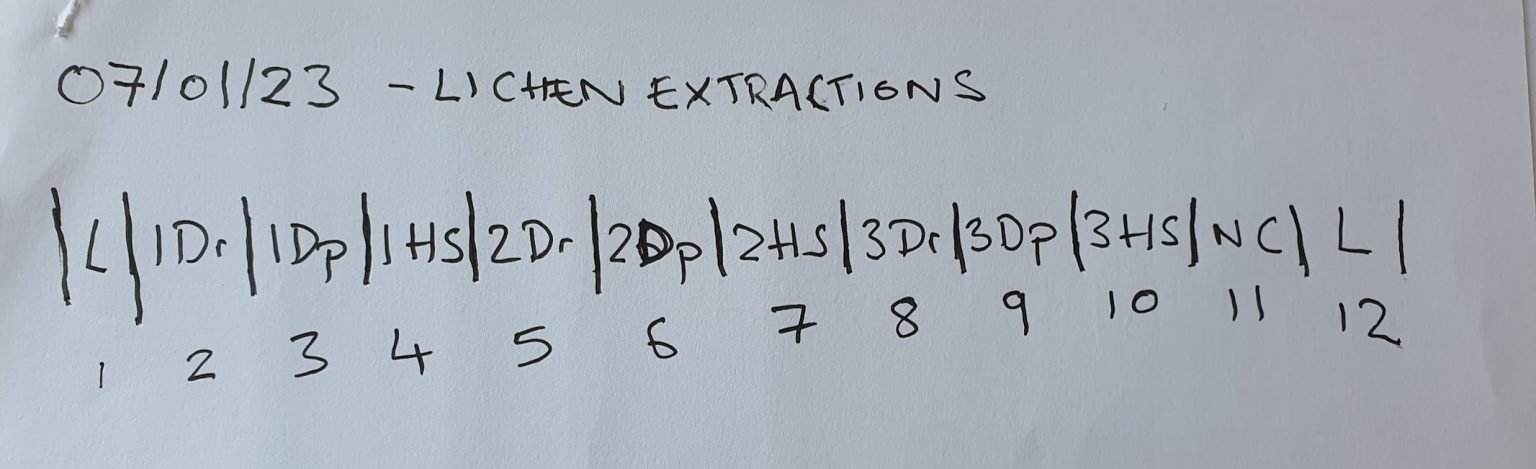 07/01/23 - LICHEN EXTRACTIONS
|L|1Dr|1Dp|1HS|2Dr|2Dp|2HS|3Dr|3Dp|3HS|NC|L|
1 2 3 4 5 6 7 8 9 10 11 12